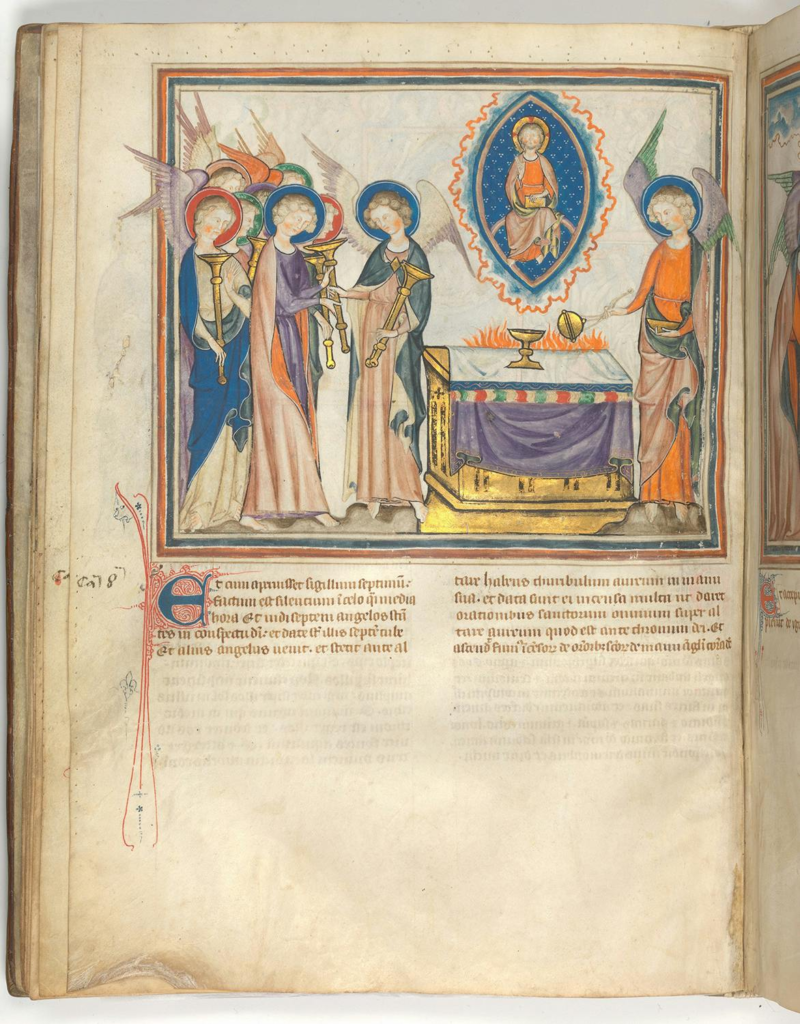 Cam 8
Et cum aperuisset sigillum septimum:
factum est silencium i celo qi media
hora Et uidi septem angelos stan
tes in conspectu di. et date st illis septe tube
Et alius angelus uenit. et stetit ante al
tare habens thuribulum aureum in manu
sua. et data sunt ei incensa multa ut daret
orationibus sanctorum omnium super al
tare aureum quod est ante thronum dei. Et
ascend fum icesor de oroibz scor de manu agli cora do
Et accep
pleuit de ig